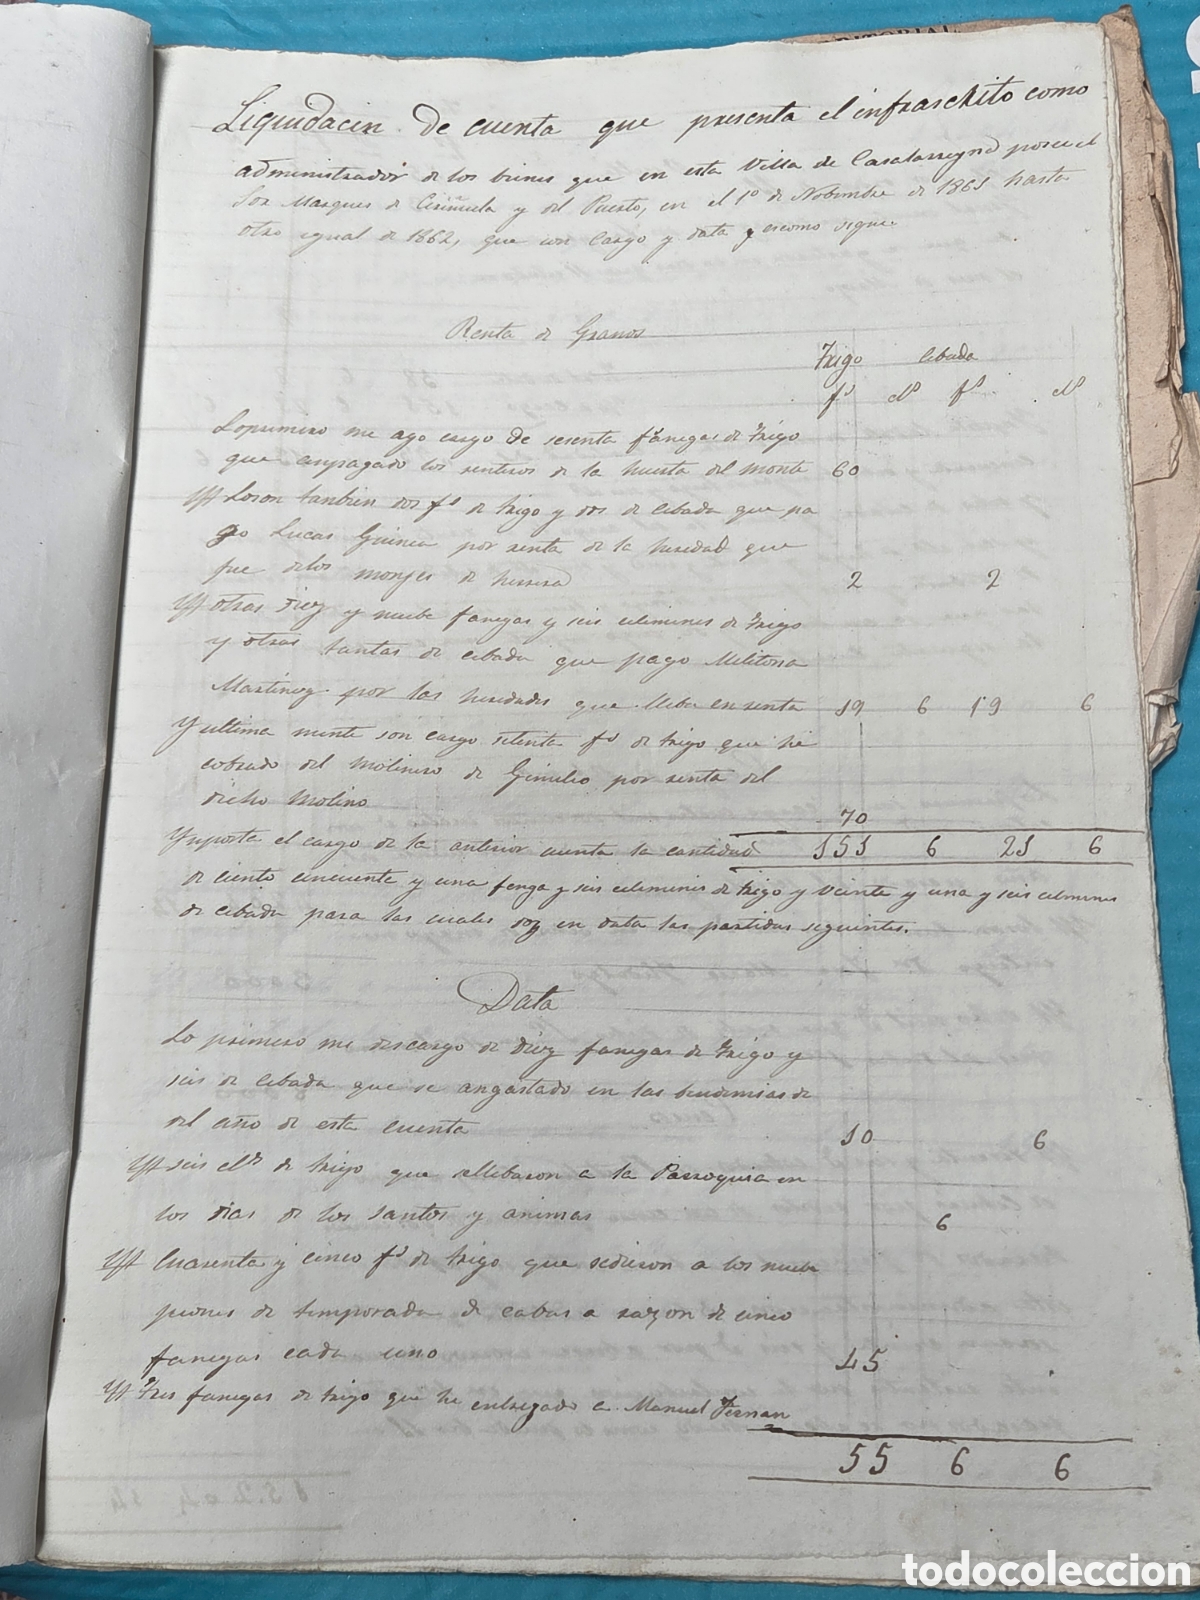 EDITORIAL
Liquidacin de cuenta que presenta el infraschito como
administrador de los bienes que en esta Villa de Casalarreyna posee el
Sor Marques de Cirinuela y del Puerto, en el 1º de Nobimbre de 1861 hasta
otro igual de 1862, que con Cargo y data es como sigue
Renta de Granos
Trigo Cebada
fs cls fs cls
Loprimero me ago cargo de sesenta fanegas de Trigo
que anpagado los renteros de la huerta del monte 60
Yt Loson tanbien dos fs de trigo y dos de Cebada que pa
go Lucas Guinea por renta de la heredad que
fue delos monjes de herrera 2 2
Yt otras diez y nuebe fanegas y seis celimines de Trigo
y otras tantas de cebada que pago Melitona
Martinez por las heredades que lleba en renta 19 6 19 6
Y ultima mente son cargo setenta fs de trigo que he
cobrado del Molinero de Gimileo por renta del
dicho Molino 70
Ynporta el cargo de la anterior cuenta la cantidad 151 6 21 6
de ciento cincuenta y una fenga y seis celimines de trigo y veinte y una y seis celmines
de cebada para las cuales doy en data las partidas seguientes.
Data
Lo primero me descargo de diez fanegas de Trigo y
seis de Cebada que se angastado en las bendimias de
del año de esta cuenta 10 6
Yt seis cls de trigo que sellebaron a la Parroquia en
los dias de los santos y animas 6
Yt Cuarenta y cinco fs de trigo que sedieron a los nuebe
peones de temporada de cabas a razon de cinco
fanegas cada uno 45
Yt Tres fanegas de trigo que he entregado a Manuel Fernan
55 6 6
todocoleccion